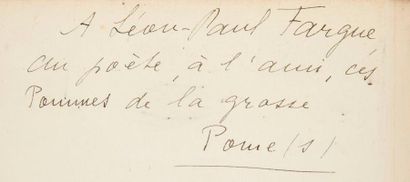 A Léon-Paul Fargue
au poète, à l'ami, ces
Pommes de la grosse
Pome (s)